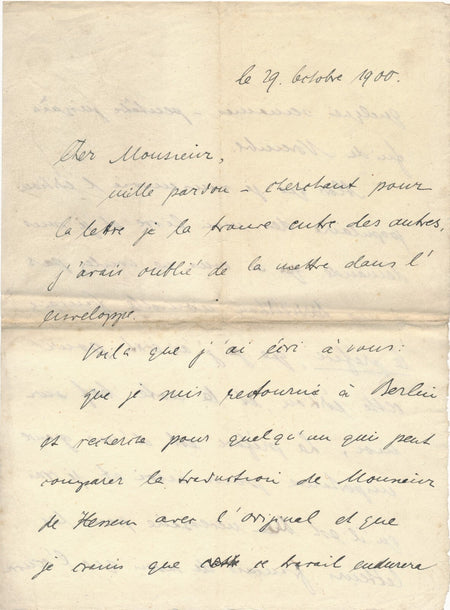 le 29. Octobre 1900.
Cher Monsieur,
mille pardon – cherchant pour
la lettre je la trouve entre des autres,
j'avais oublié de la mettre dans l'
enveloppe.
Voilà que j'ai écri à vous:
que je suis retournée à Berlin
et recherche pour quelqu'un qui peut
comparer la traduction de Monsieur
de Hessem avec l'original et que
je crains que ce travail endurera